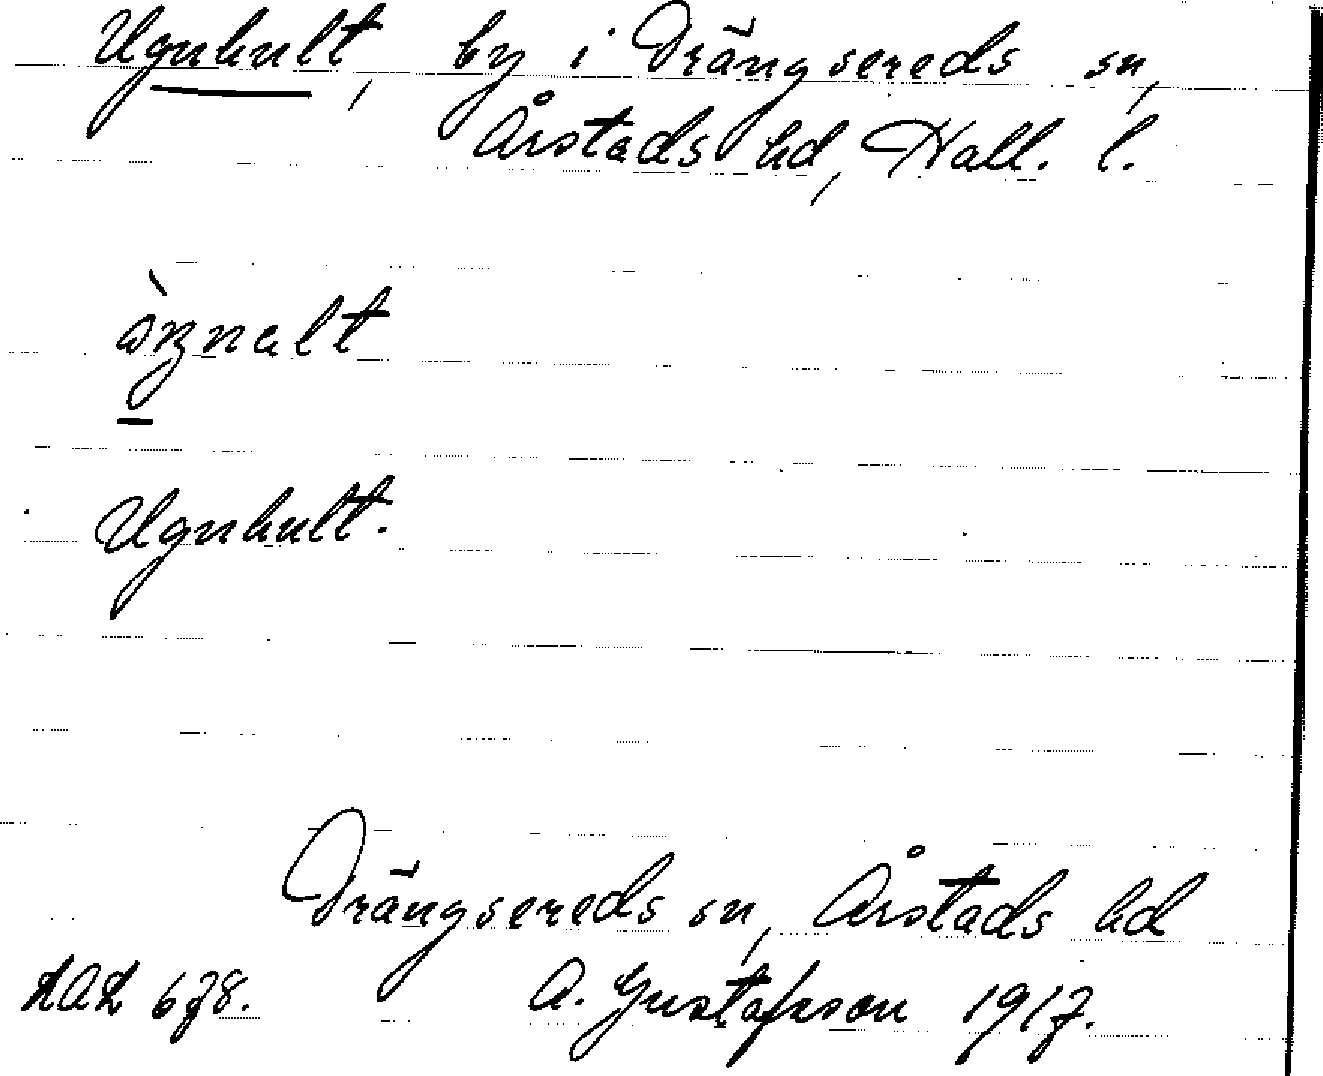 Ugnhult, by i Drängsereds sn,
Årstads hd, Hall. l.
Ugnhult.
Drängsereds sn, Årstads hd
LAL 678. A. Gustafsson 1917.